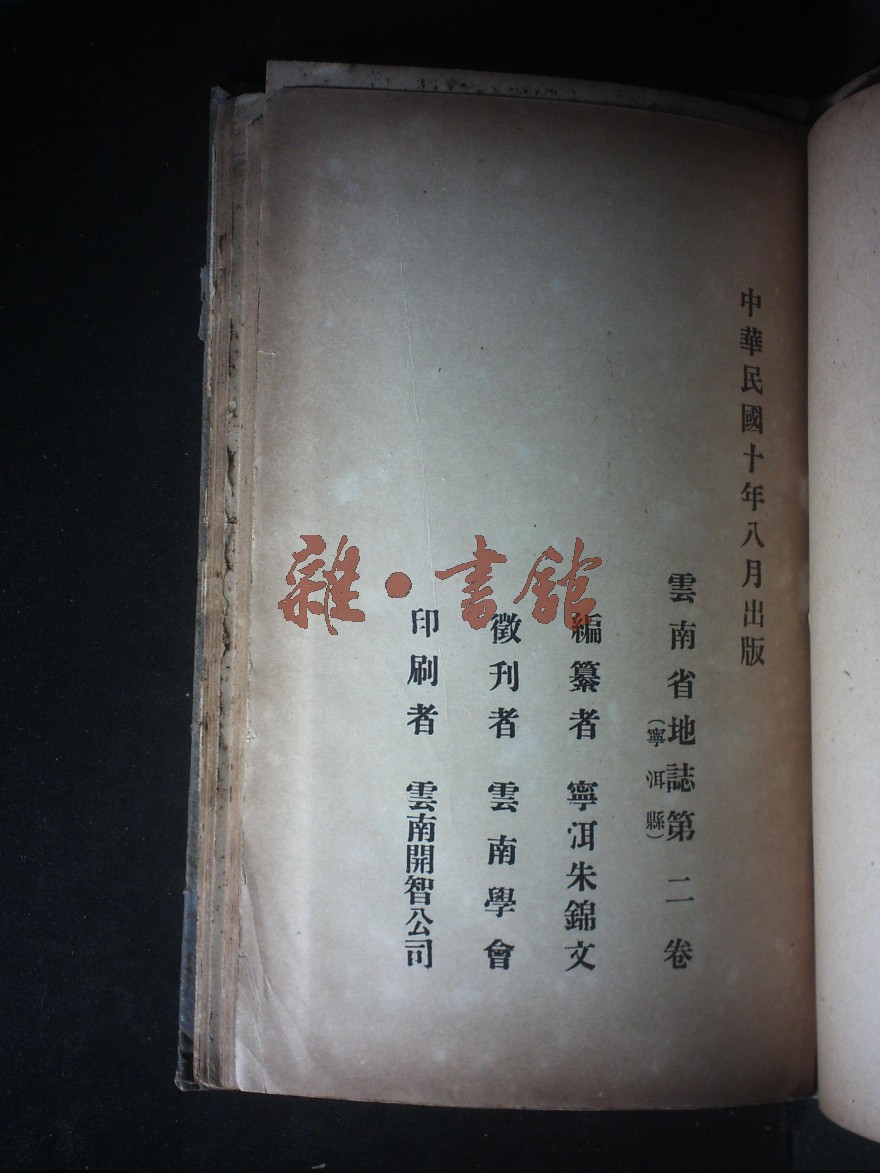 中華民國十年八月出版
雲南省地誌第二卷
（寧洱縣）
編纂者 寧洱朱錦文
徵刊者 雲南學會
印刷者 雲南開智公司
雜·書館